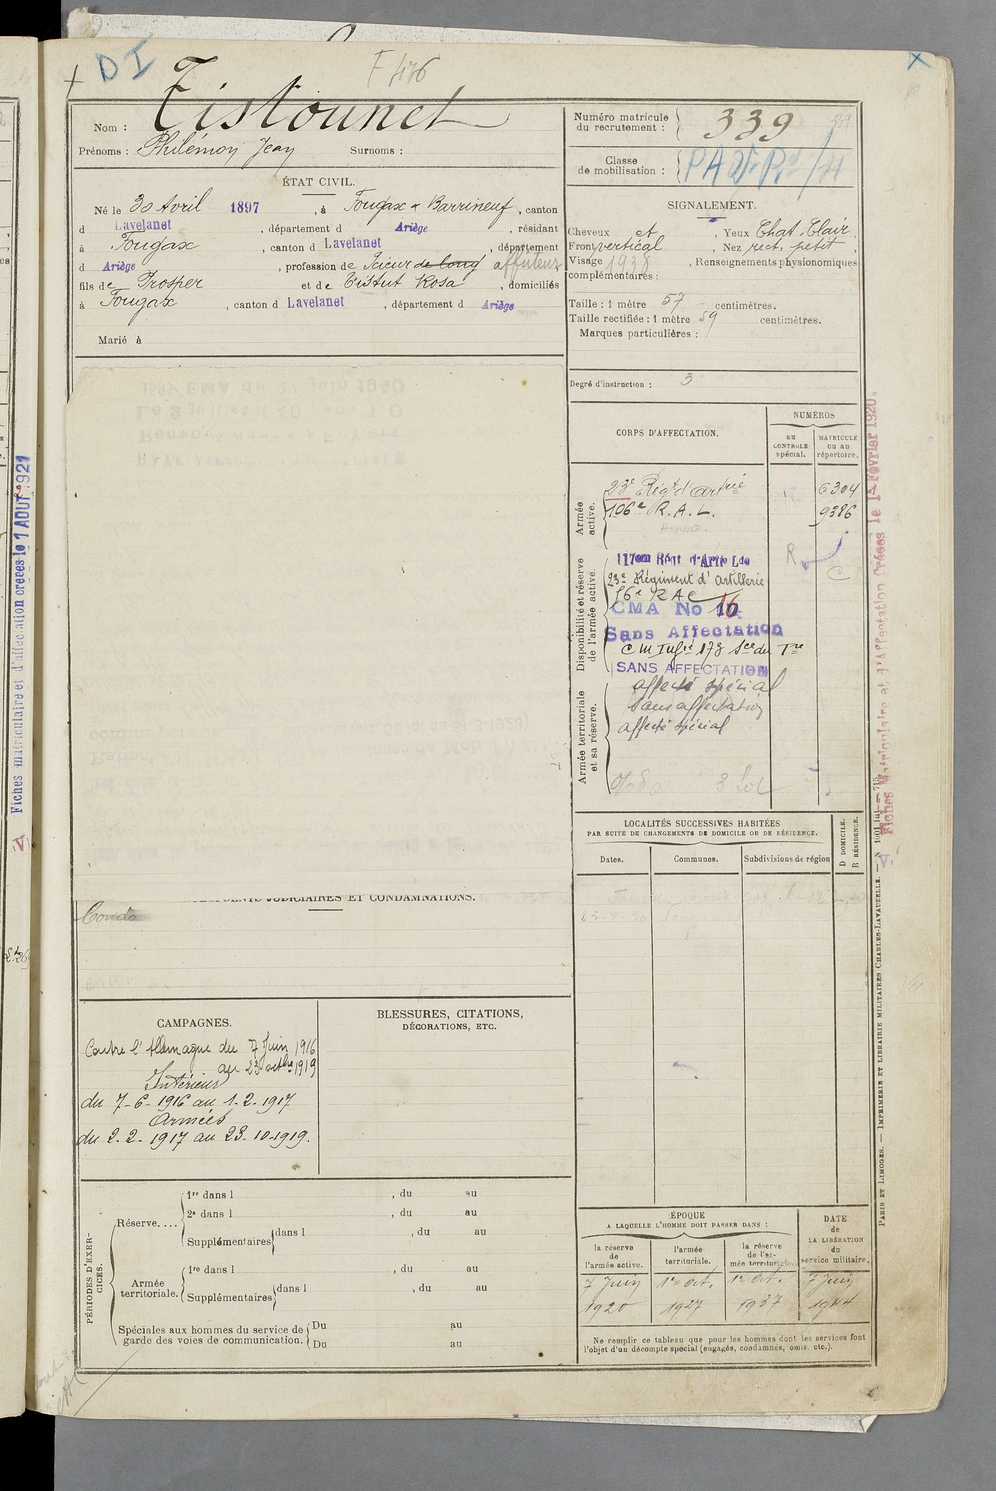 DI
F 476
Nom : Tistounet
Prénoms : Philémon Jean Surnoms :
ÉTAT CIVIL.
Né le 30 Avril 1897, à Fougax & Barrineuf, canton
d Lavelanet, département d Ariège, résidant
à Fougax, canton d Lavelanet, département
d Ariège, profession de Scieur de long affuteur
fils de Prosper et de Tistut Rosa, domiciliés
à Fougax, canton d Lavelanet, département d Ariège
Marié à
Numéro matricule du recrutement : 339
Classe de mobilisation :
SIGNALEMENT.
Cheveux , Yeux Chat. Clair
Front vertical, Nez rect. petit
Visage 1938, Renseignements physionomiques
complémentaires :
Taille : 1 mètre 57 centimètres.
Taille rectifiée : 1 mètre 59 centimètres.
Marques particulières :
Degré d'instruction : 3
CORPS D'AFFECTATION.
NUMÉROS
au contrôle spécial.
MATRICULE ou au répertoire.
Armée active.
23e Régt d'artrie 6304
106e R.A.L. 9386
Disponibilité et réserve de l'armée active.
117eme Régt d'Artie Lde
R
C
23e Régiment d'artillerie
56e RAC
CMA No 16
Sans Affectation
SANS AFFECTATION
Armée territoriale et sa réserve.
affecté spécial
Sans affectation
affecté spécial
LOCALITÉS SUCCESSIVES HABITÉES
PAR SUITE DE CHANGEMENTS DE DOMICILE OU DE RÉSIDENCE.
Dates. Communes. Subdivisions de région
D DOMICILE.
R RÉSIDENCE.
JUDICIAIRES ET CONDAMNATIONS.
CAMPAGNES.
Contre l'Allemagne du 7 Juin 1916
au 23 octbre 1919
Intérieur
du 7-6-1916 au 1.2.1917
Armées
du 2-2-1917 au 23-10-1919.
BLESSURES, CITATIONS,
DÉCORATIONS, ETC.
PÉRIODES D'EXERCICES.
Réserve....
1re dans l , du au
2e dans l , du au
Supplémentaires dans l , du au
Armée territoriale.
1re dans l , du au
Supplémentaires dans l , du au
Spéciales aux hommes du service de garde des voies de communication.
Du au
Du au
ÉPOQUE
A LAQUELLE L'HOMME DOIT PASSER DANS :
la réserve de l'armée active.
l'armée territoriale.
la réserve de l'armée territoriale.
DATE de LA LIBÉRATION du service militaire.
7 Juin 1er oct. 1er oct. 7 Juin
1920 1927 1937 1944
Ne remplir ce tableau que pour les hommes dont les services font
l'objet d'un décompte spécial (engagés, condamnés, omis, etc.).
PARIS ET LIMOGES. — IMPRIMERIE ET LIBRAIRIE MILITAIRES CHARLES-LAVAUZELLE.
Fiches Matriculaire et d'Affectation Créées le 1er Février 1920.
Fiches matriculaire et d'affectation créées le 1 AOUT 1921